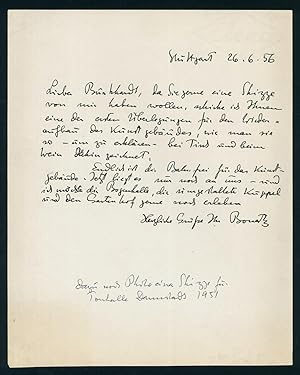 Stuttgart 26.6.56
Lieber Burkhardt, da Sie gerne eine Skizze
von mir haben wollen, schicke ich Ihnen
eine der ersten Überlegungen für den Wieder-
aufbau des Kunstgebäudes, wie man sie
so – um zu erklären – bei Tisch und beim
Wein dahin zeichnet.
Endlich ist die Bahn frei für das Kunst-
gebäude. Jetzt liegt es nur noch an uns – und
ich möchte die Bogenhalle die umgestaltete Kuppel
und den Gartenhof gerne noch erleben
Herzliche Grüße Ihr Bonatz
dazu noch Photo einer Skizze für
Tonhalle Darmstadt 1951